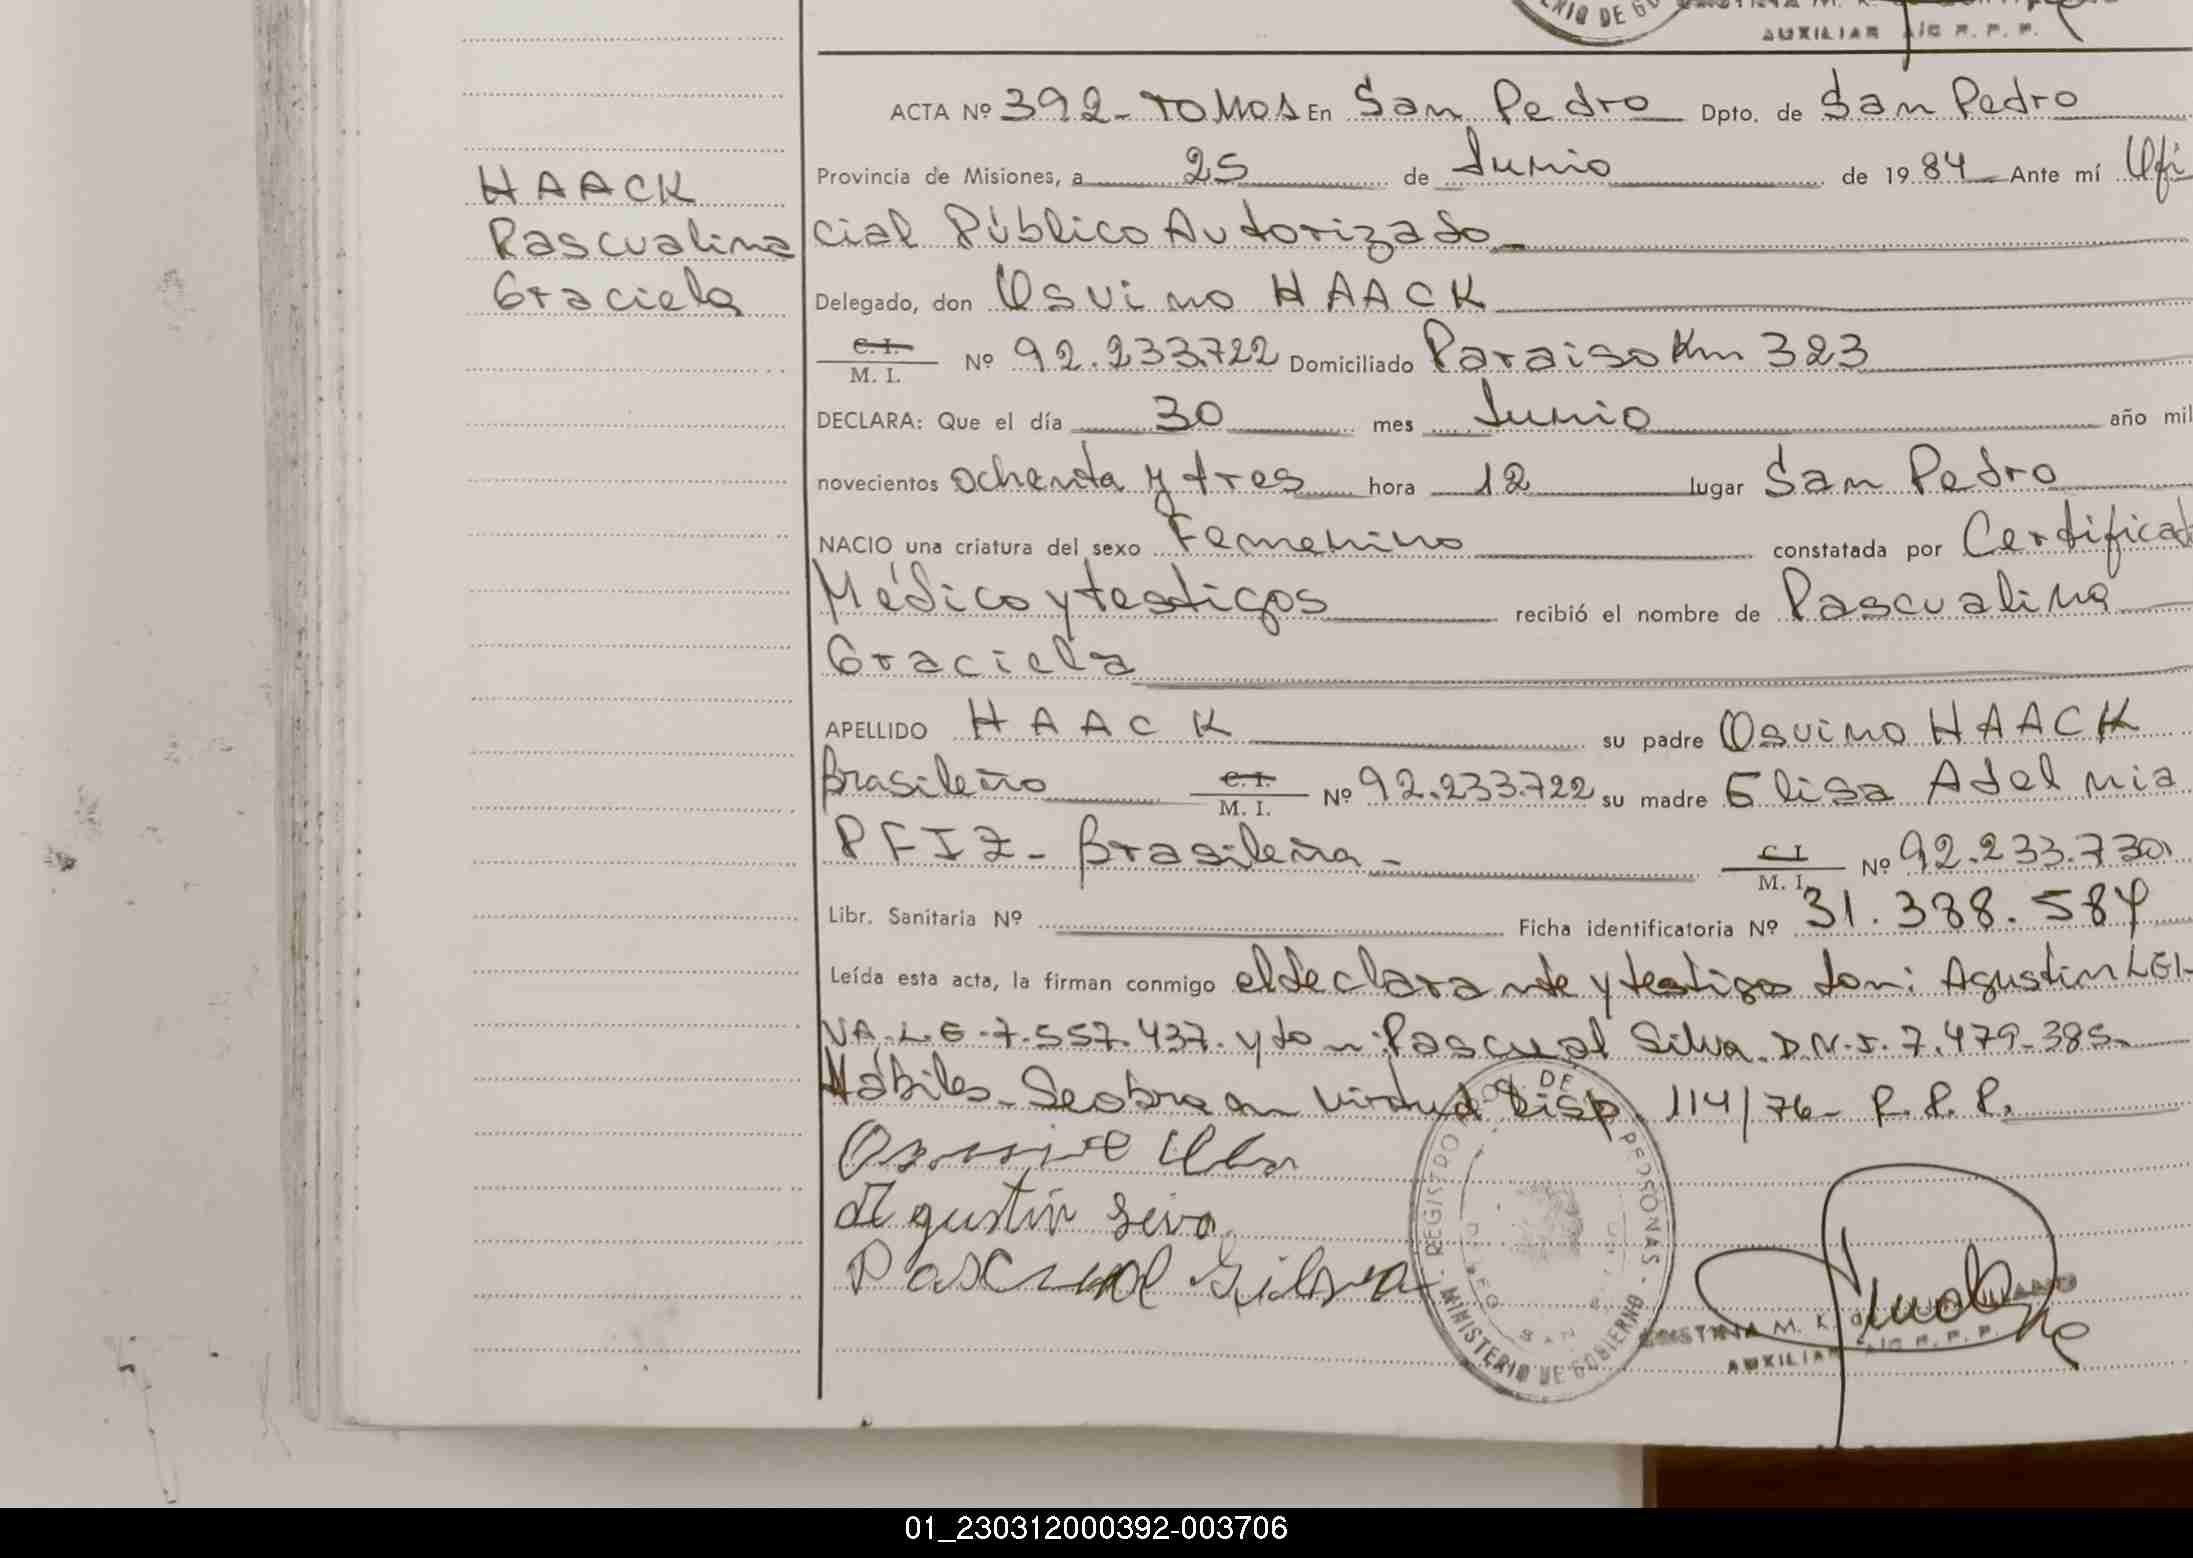 ERIO DE GO
AUXILIAR A/C R. P. P.
ACTA Nº 392- TOMO SA En San Pedro Dpto. de San Pedro
Provincia de Misiones, a 25 de Junio de 1984 Ante mí Ofi
HAACK
cial Público Autorizado
Pascualina
Delegado, don Osvino HAACK
Graciela
C. I.
M. I. Nº 92.233.722 Domiciliado Paraiso Km 323
DECLARA: Que el día 30 mes Junio año mil
novecientos ochenta y tres hora 12 lugar San Pedro
NACIO una criatura del sexo Femenino constatada por Certificad
Médico y testigos recibió el nombre de Pascualina
Graciela
APELLIDO HAACK su padre Osvino HAACK
Brasileño C. I. M. I. Nº 92.233.722 su madre Elisa Adelmia
PFIZ - Brasileña - C I M. I. Nº 92.233.730
Libr. Sanitaria Nº Ficha identificatoria Nº 31.388.584
Leída esta acta, la firman conmigo el declarante y testigos don: Agustin LEI-
VA. L.E. 7.557.437. y don: Pascual Silva. D.N.I. 7.479.385.
Hábiles. Se obra en virtud Disp. 114/76 - R.P.P.
Agustin Leiva
Pascual Silva
REGISTRO DE PERSONAS - MINISTERIO DE GOBIERNO
CRISTINA M. K. d
AUXILIAR A/C R. P. P.
01_230312000392-003706